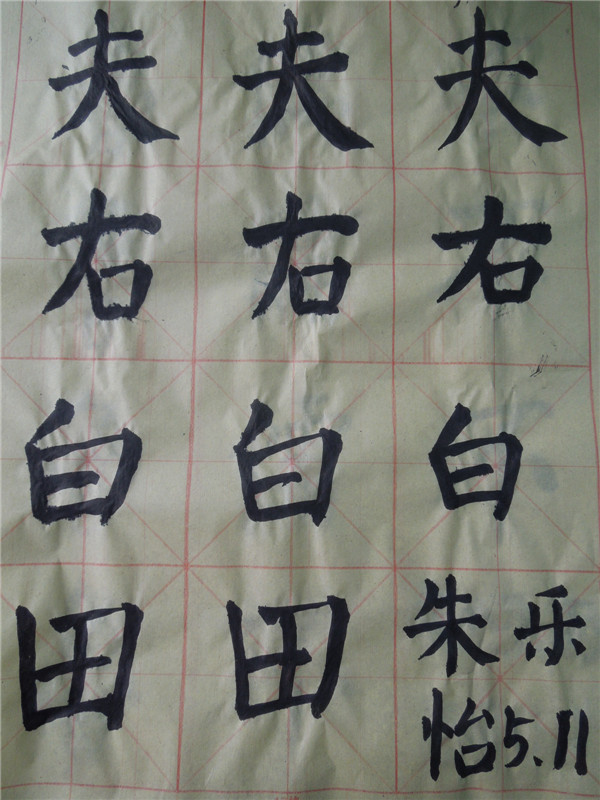 夫夫夫
右右右
白白白
田田朱乐
怡5.11